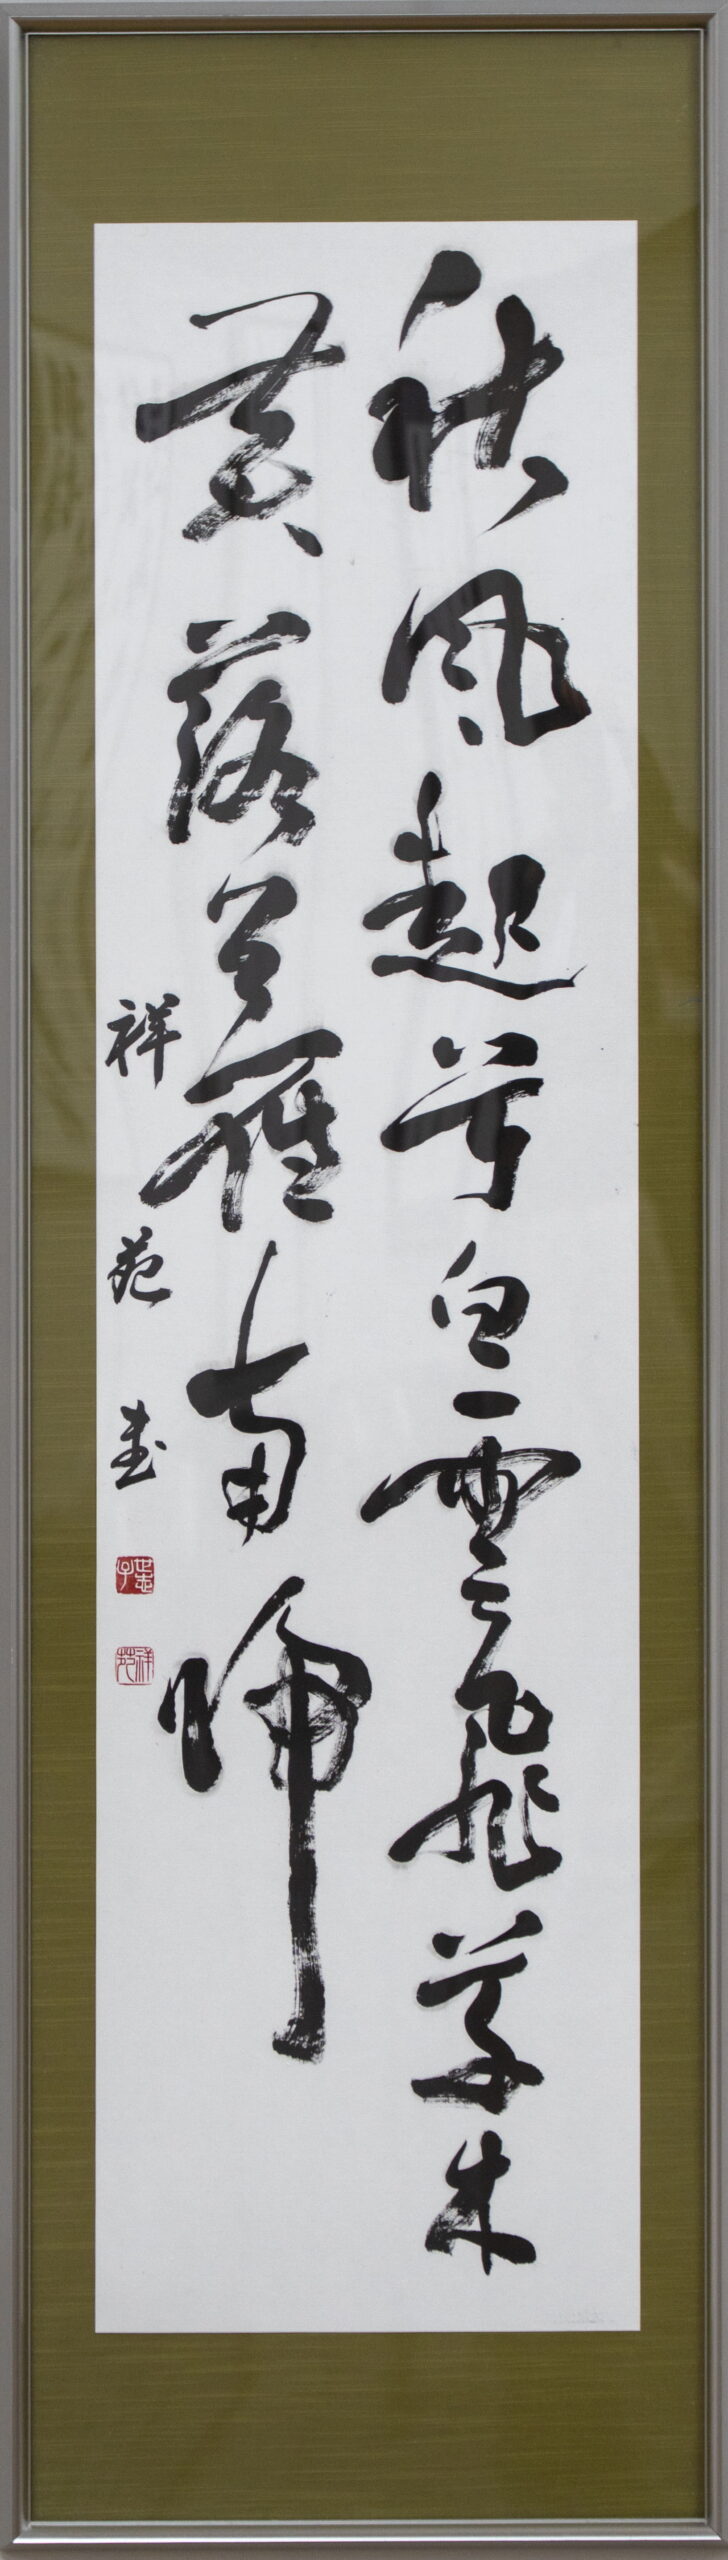 秋風起兮白雲飛草木
黄落兮雁南帰
祥苑書
祥苑